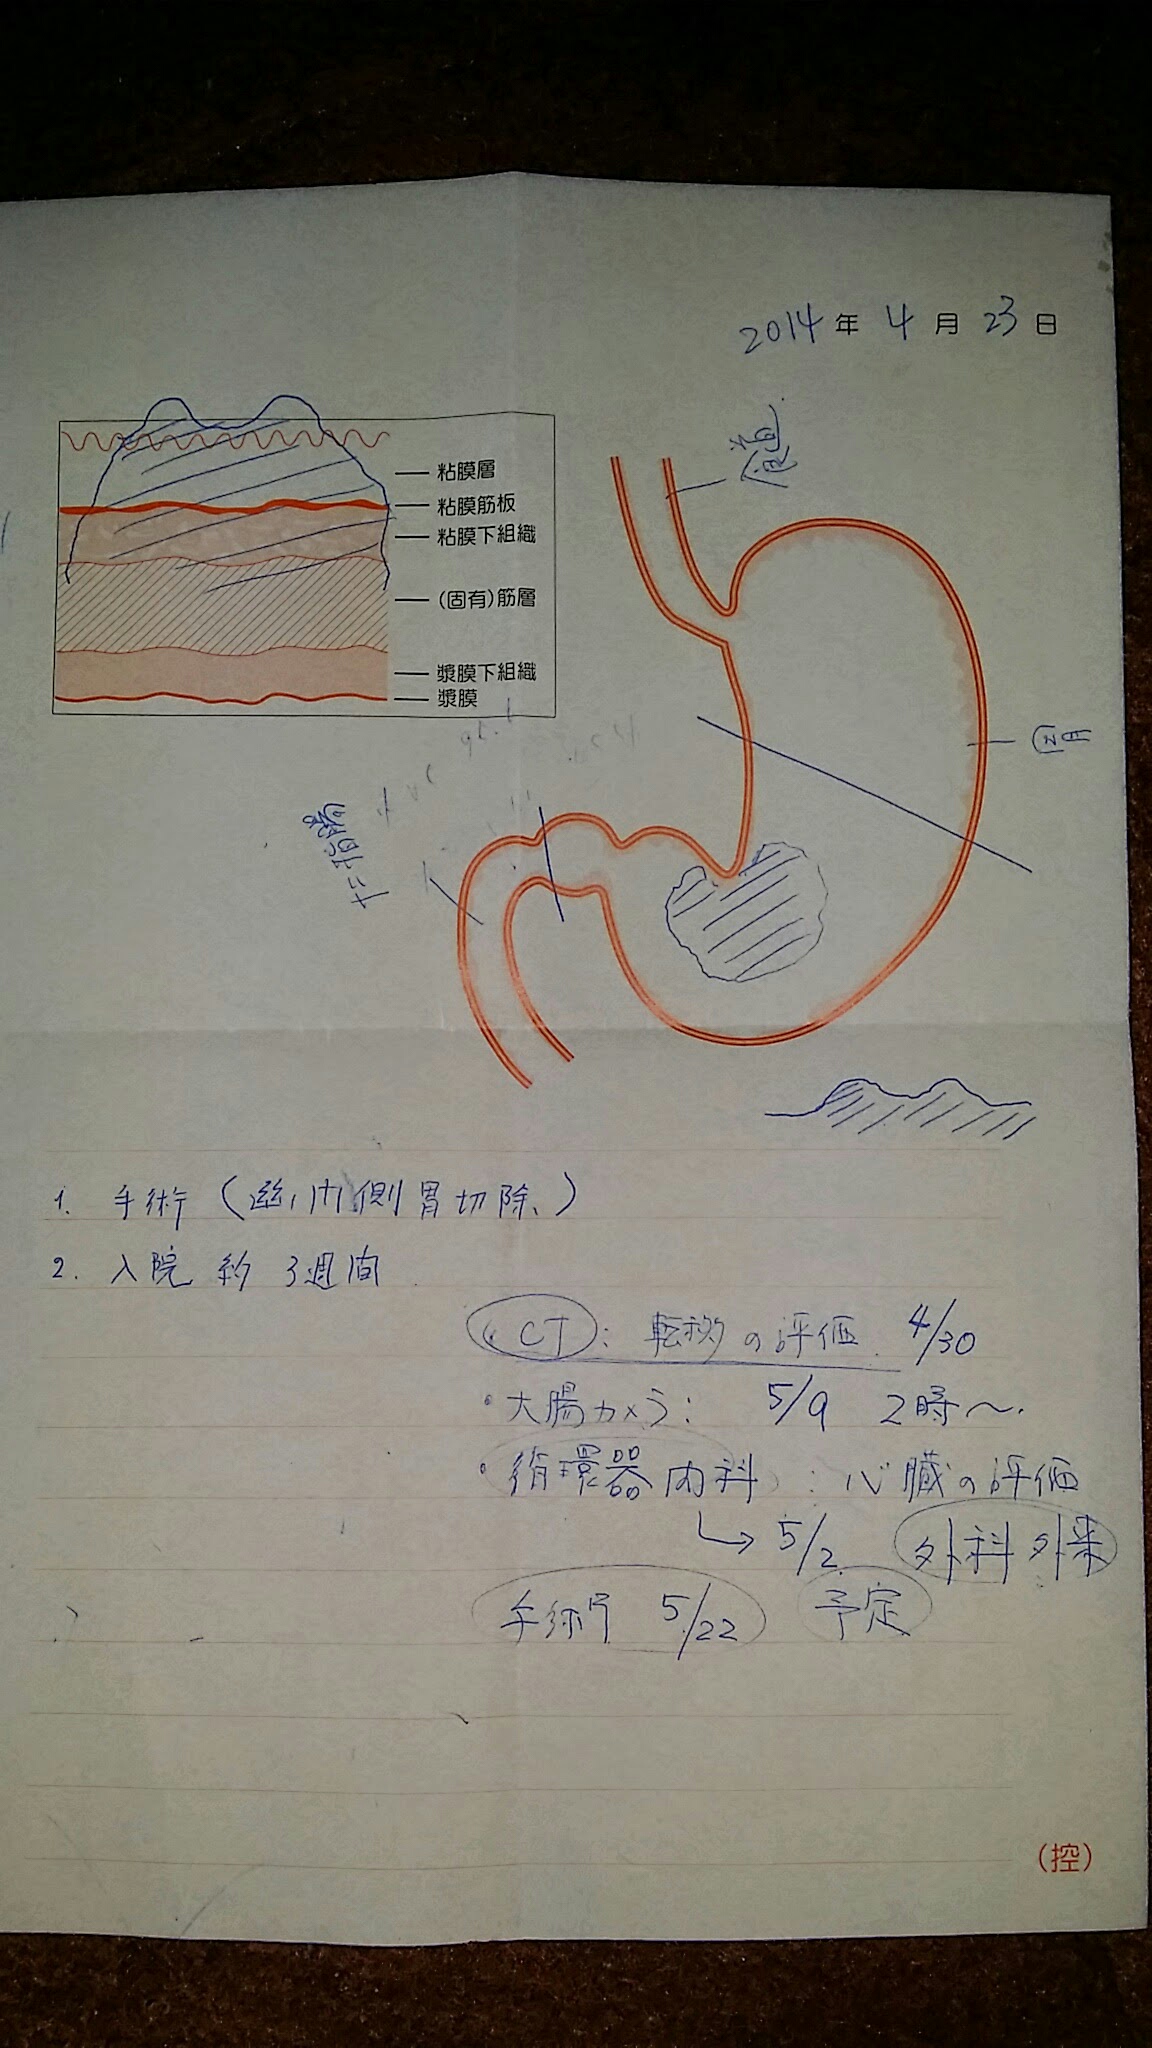 2014年 4月 23日
食道
粘膜層
粘膜筋板
粘膜下組織
(固有)筋層
漿膜下組織
漿膜
胃
十二指腸
1. 手術 (幽門側胃切除)
2. 入院 約 3週間
・CT: 転移の評価 4/30
・大腸カメラ: 5/9 2時〜
・循環器内科: 心臓の評価
↳ 5/2 外科外来
手術 5/22 予定
(控)